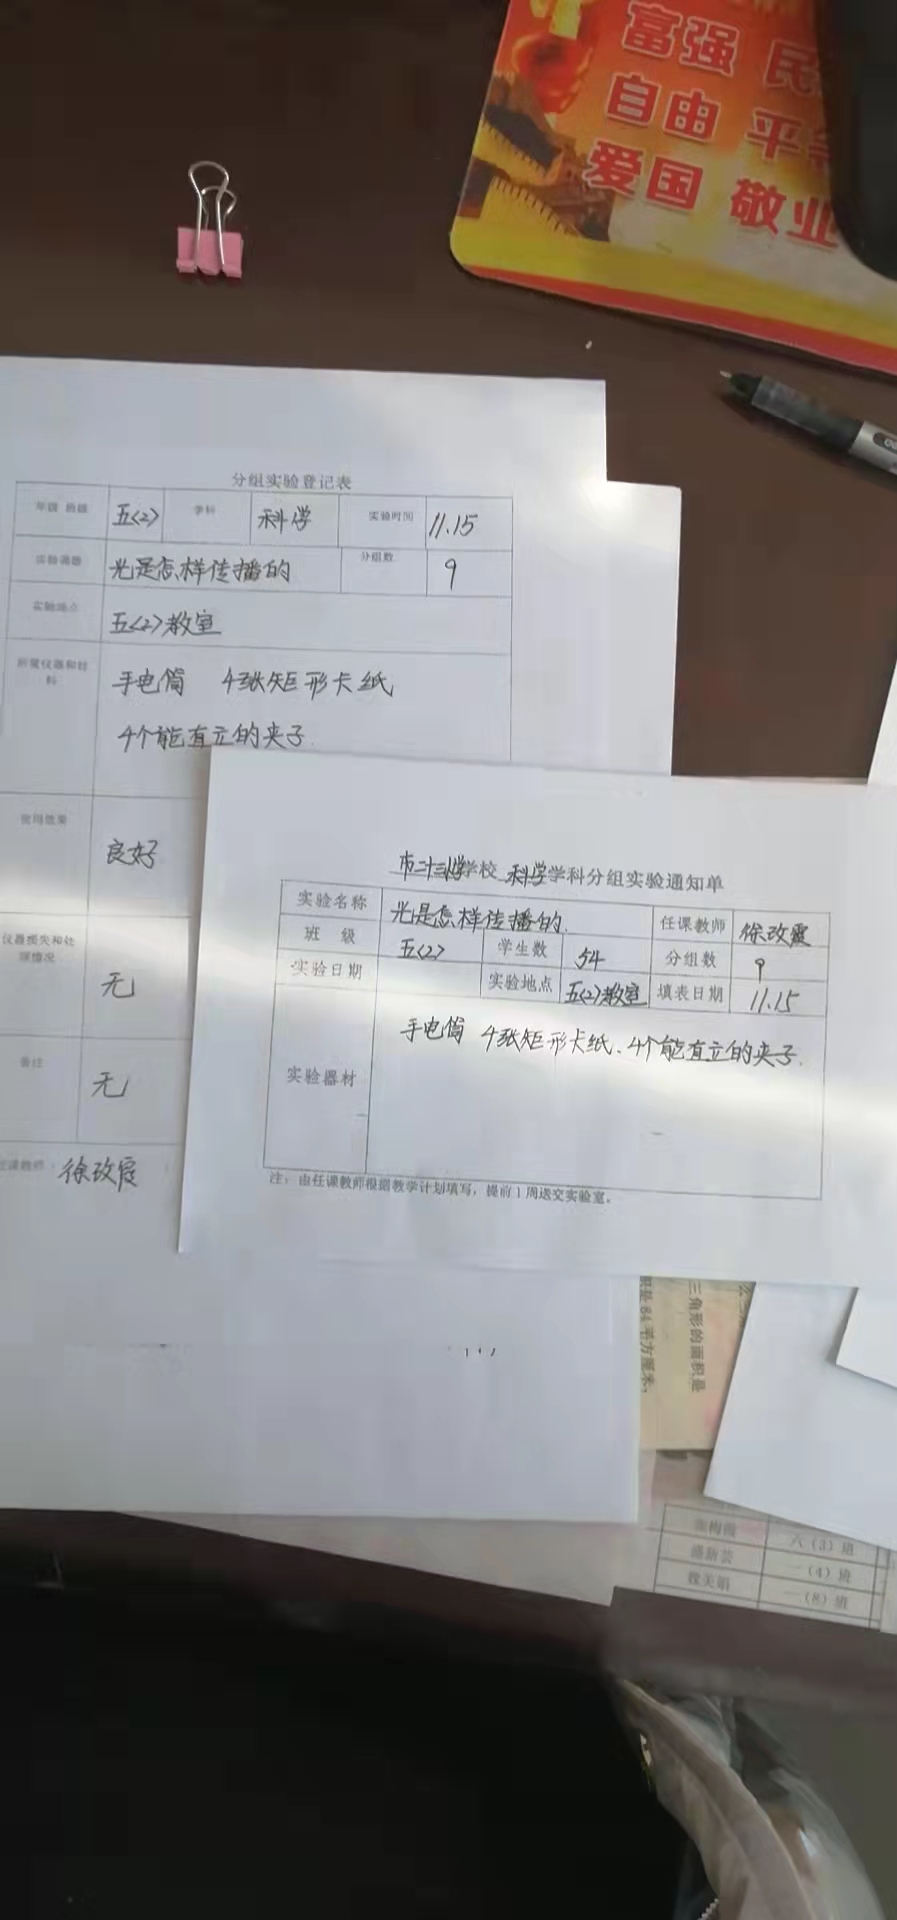 富强 民
自由 平等
爱国 敬业
分组实验登记表
年级 班级 五(2) 学科 科学 实验时间 11.15
实验课题 光是怎样传播的 分组数 9
实验地点 五(2)教室
所需仪器和材料 手电筒 4张矩形卡纸
4个能直立的夹子
使用效果 良好
仪器损失和处理情况 无
备注 无
任课教师: 徐改霞
市二十三小学学校 科学学科分组实验通知单
实验名称 光是怎样传播的. 任课教师 徐改霞
班 级 五(2) 学生数 54 分组数 9
实验日期 实验地点 五(2)教室 填表日期 11.15
实验器材 手电筒 4张矩形卡纸、4个能直立的夹子.
注:由任课教师根据教学计划填写,提前1周送交实验室。
三角形的面积是
积是84平方厘米,
六(3)班
一(4)班
一(8)班